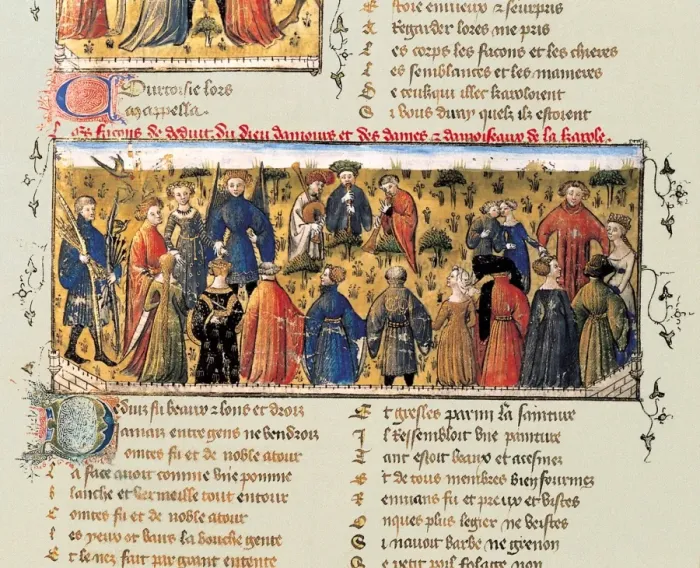 Courtoisie lors
Ma appella.
Estoie enuieux & seurpris
A Regarder lores me pris
Les corps les facons et les chieres
Les semblances et les manieres
De ceulx qui illec karoloient
Si vous diray quelz ilz estoient
Les facons de deduit, du dieu damours et des dames & damoiseaux de la karole.
Deduiz fu beaux & lons et droiz
Jamaiz entre gens ne vendroiz
Comtes fu et de noble atour
La face auoit comme vne pomme
Blanche et vermeille tout entour
Comtes fu et de noble atour
Les yeux ot vairs la bouche gente
Et le nez fait par grant entente
Et gresles parmi la sainture
Il ressembloit vne painture
Tant estoit beaux et acesmez
Et de tous membres bien fourmez
Remuans fu et preux et vistes
Onques plus legier ne veistes
Si nauoit barbe ne grenon
Se petit poil folage non